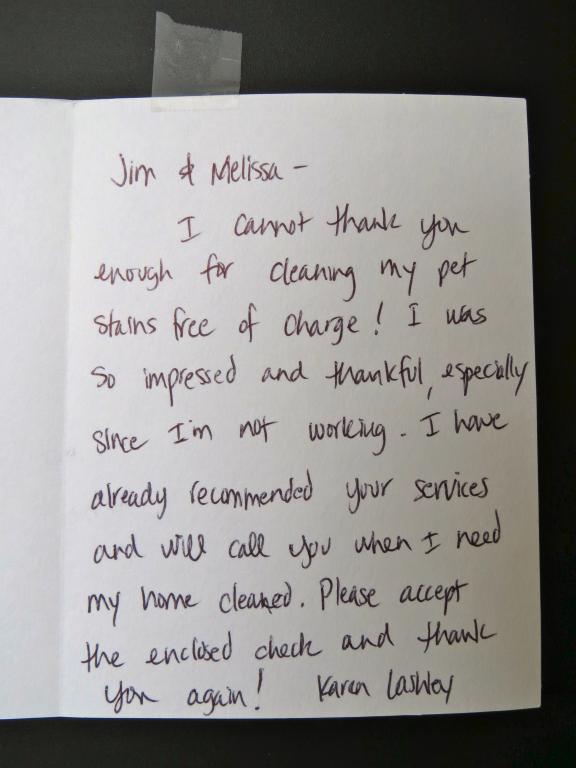 Jim & Melissa -
I cannot thank you
enough for cleaning my pet
stains free of charge! I was
so impressed and thankful, especially
since I'm not working. I have
already recommended your services
and will call you when I need
my home cleaned. Please accept
the enclosed check and thank
you again! Karen Lashley